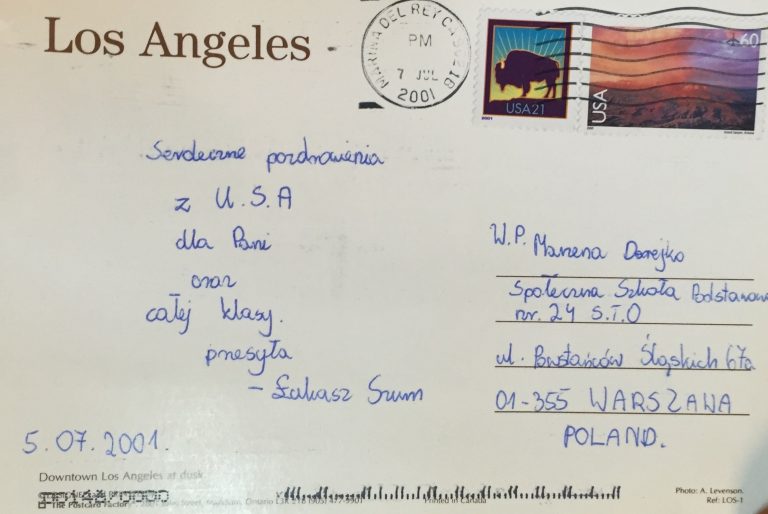 Los Angeles
MARINA DEL REY CA
PM
7 JUL
2001
USA21
2001
USA
60
Serdeczne pozdrowienia
z U.S.A
dla Pani
oraz
całej klasy.
przesyła
- Łukasz Szum
5.07.2001.
W.P. Marzena Darejko
Społeczna Szkoła Podstawowa
nr. 24 S.T.O
ul. Powstańców Śląskich 67a
01-355 WARSZAWA
POLAND.
Downtown Los Angeles at dusk
The Postcard Factory
Printed in Canada
Photo: A. Levenson.
Ref: LOS-1